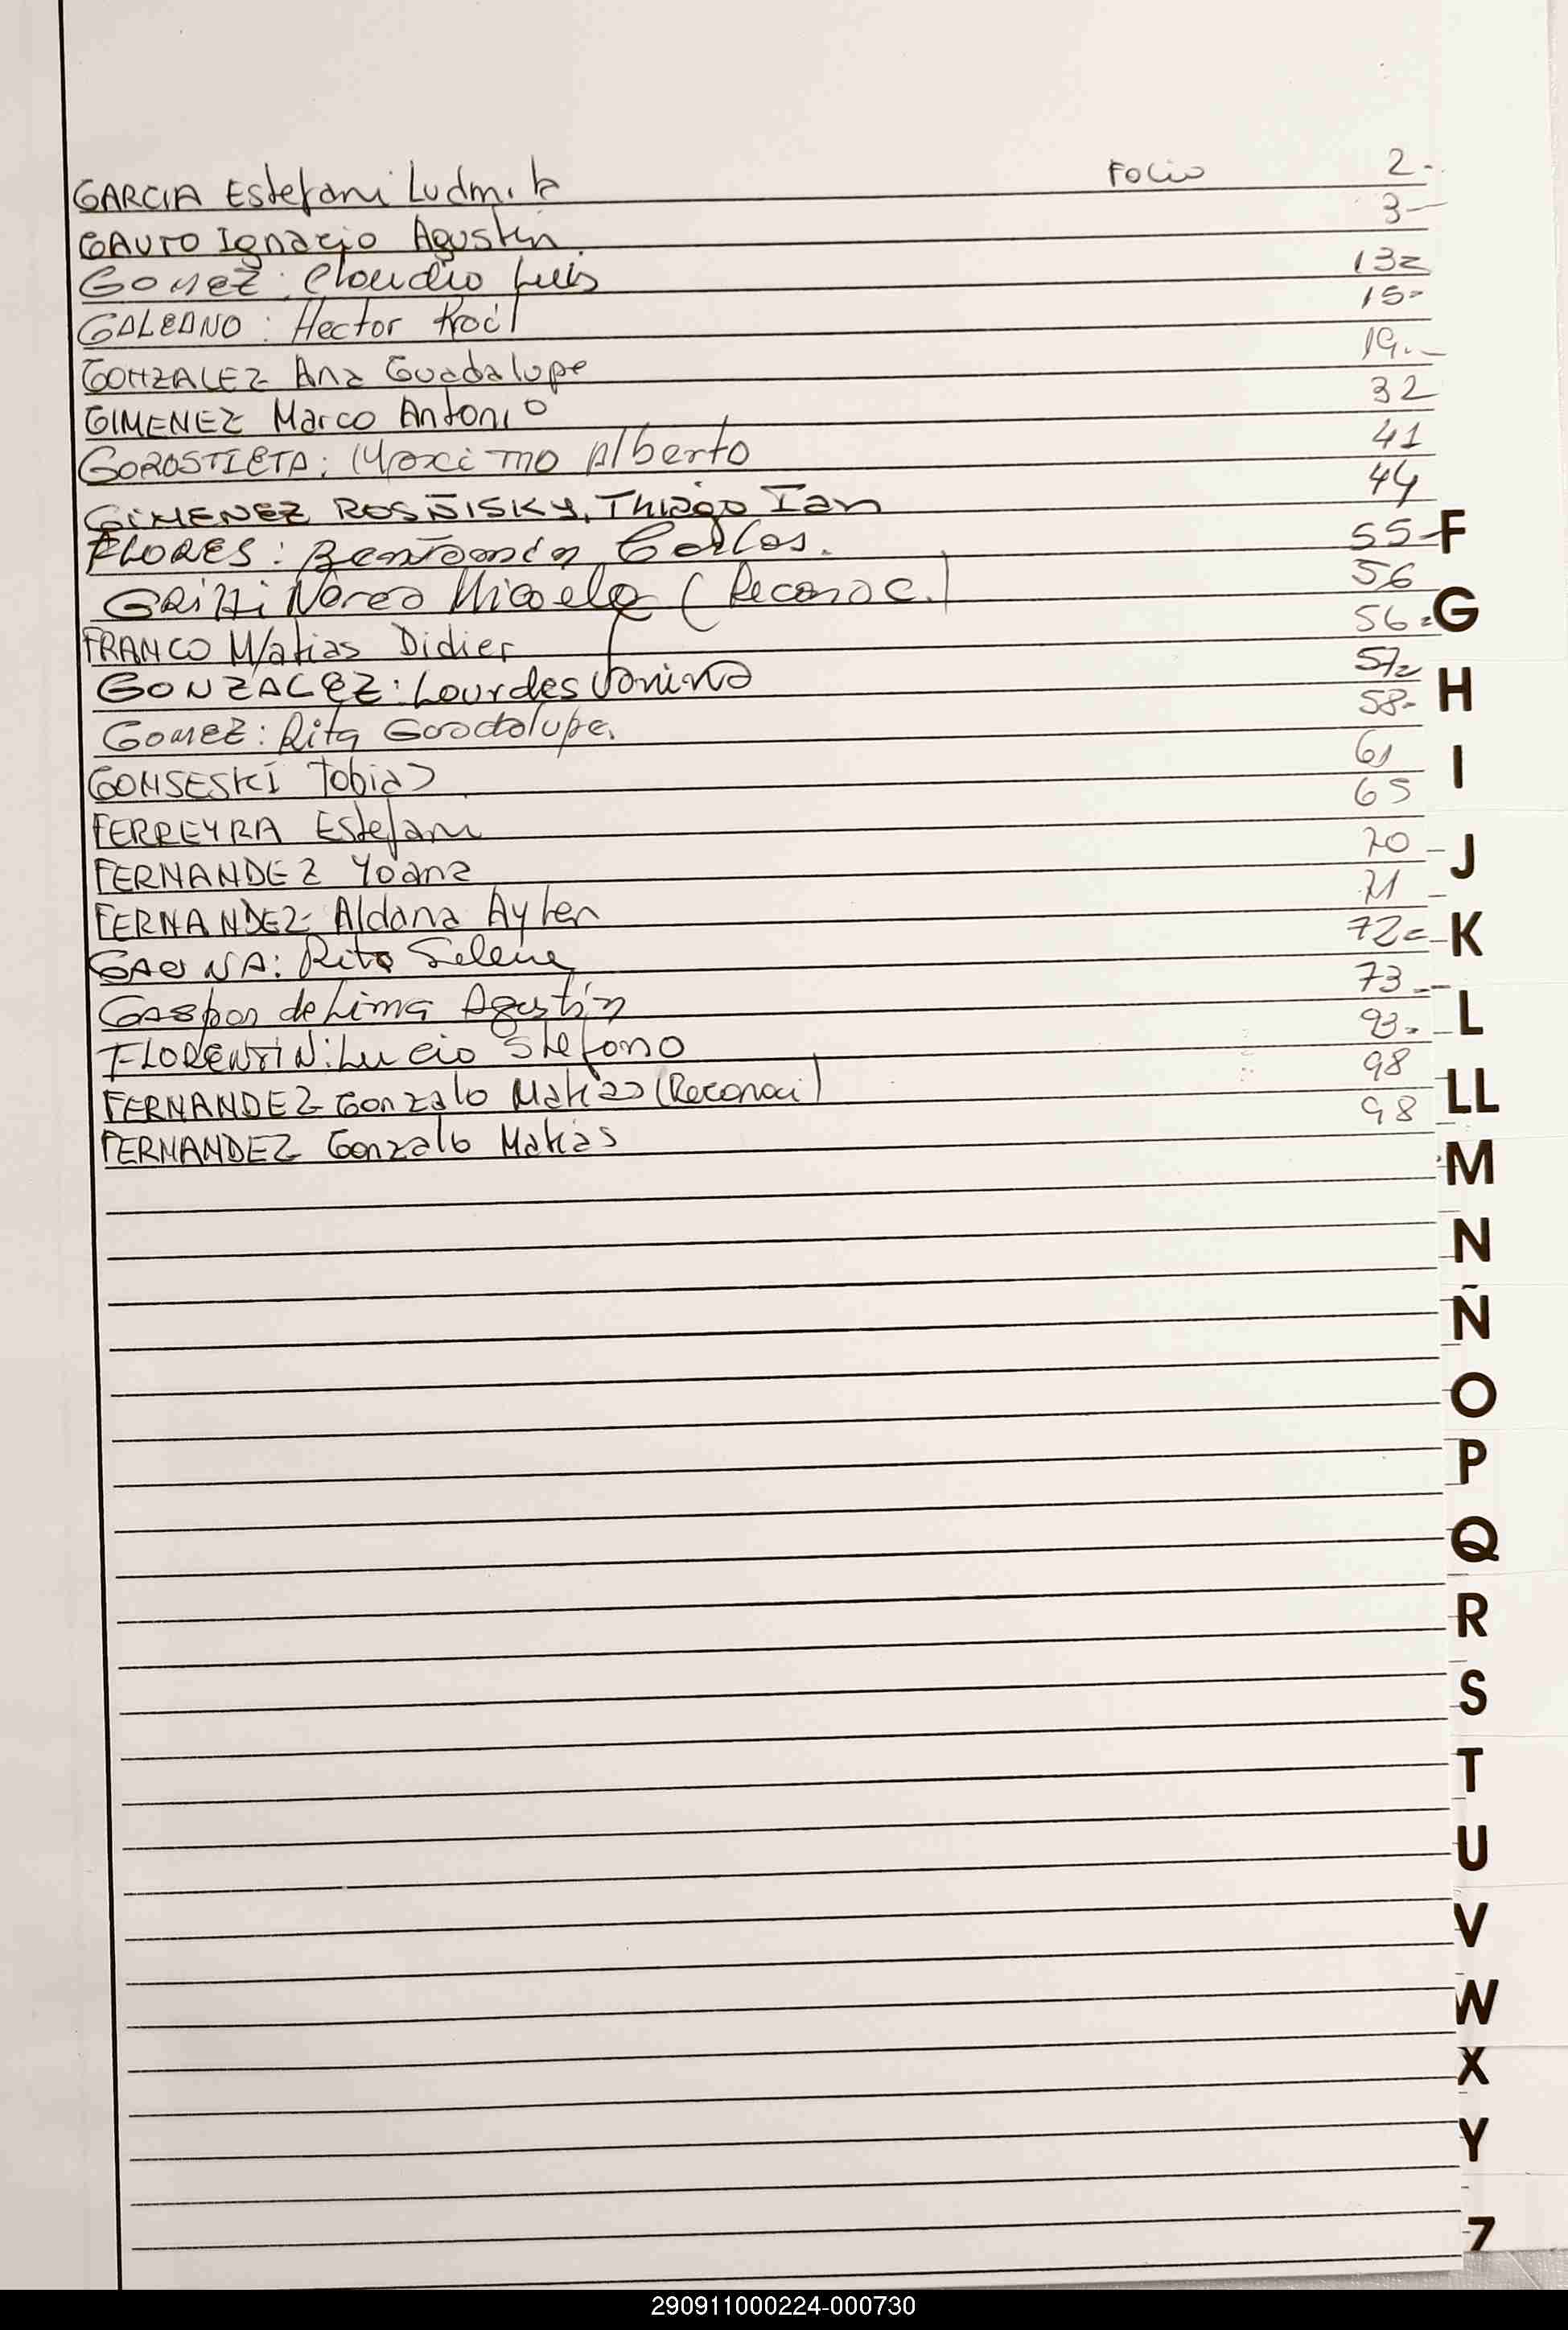 GARCIA Estefani Ludmila Folio 2-
GAUTO Ignacio Agustin 3-
GOMEZ: Claudio Luis 13=
GALEANO: Hector 15-
GONZALEZ Ana Guadalupe 19.-
GIMENEZ Marco Antonio 32
GOROSTIETA: Maximo Alberto 41
GIMENEZ ROSÑISKY, Thiago Ian 44
FLORES: Benjamín Carlos. 55
F
Nerea Micaela (Reconoc.) 56
G
FRANCO Matias Didier 56=
GONZALEZ: Lourdes Vanina 57=
H
GOMEZ: Rita Guadalupe. 58-
GONSESKI Tobias 61
I
FERREYRA Estefani 65
FERNANDEZ Yoana 70
J
FERNANDEZ Aldana Aylen 71
GAONA: Rita Selene 72=
K
Gaspar de Lima Agustín 73=
L
FLORENTIN: Lucio Stefano 93=
FERNANDEZ Gonzalo Matias (Reconoci) 98
LL
FERNANDEZ Gonzalo Matias 98
M
N
Ñ
O
P
Q
R
S
T
U
V
W
X
Y
Z
290911000224-000730